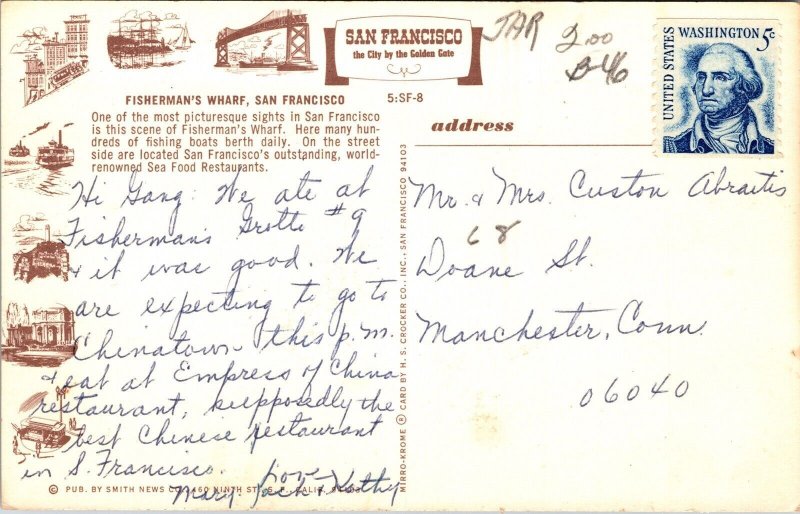 SAN FRANCISCO
the City by the Golden Gate
JAR
2.00
B-46
UNITED STATES
WASHINGTON 5c
FISHERMAN'S WHARF, SAN FRANCISCO 5:SF-8
One of the most picturesque sights in San Francisco
is this scene of Fisherman's Wharf. Here many hun-
dreds of fishing boats berth daily. On the street
side are located San Francisco's outstanding, world-
renowned Sea Food Restaurants.
Hi Gang: We ate at
Fisherman's Grotto #9
& it was good. We
are expecting to go to
Chinatown this p.m.
& eat at Empress of China
restaurant, supposedly the
best Chinese restaurant
in S. Francisco.
Love
Mary Jack & Kathy
© PUB. BY SMITH NEWS CO., 460 NINTH ST., S.F., CALIF. 94103
MIRRO-KROME ® CARD BY H. S. CROCKER CO., INC., SAN FRANCISCO 94103
address
Mr. & Mrs. Custon Abraitis
68
Doane St.
Manchester, Conn.
06040